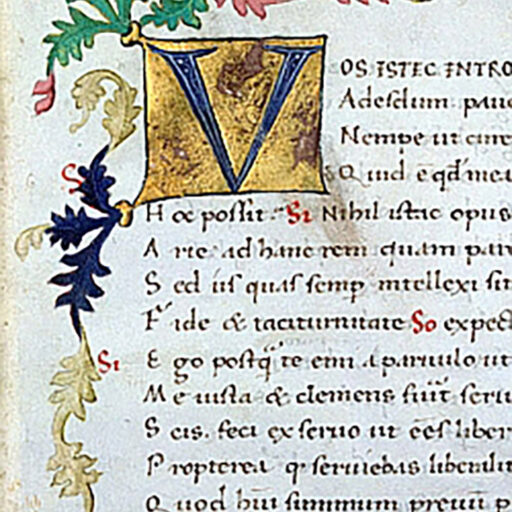 VOS ISTEC INTRO
Adesdum pauc
Nempe ut cure
S Quid ē qđ mea
Hoc possit Si Nihil istac opus
Arte ad hanc rem quam par
Sed iis quas semp intellexi sit
Fide & taciturnitate So expect
Si Ego postq̃ te emi a paruulo ut
Me iusta & clemens fuit seru
Scis. feci ex seruo ut eēs liber
Propterea q seruiebas liberalit
Quod hūi summum preciū p